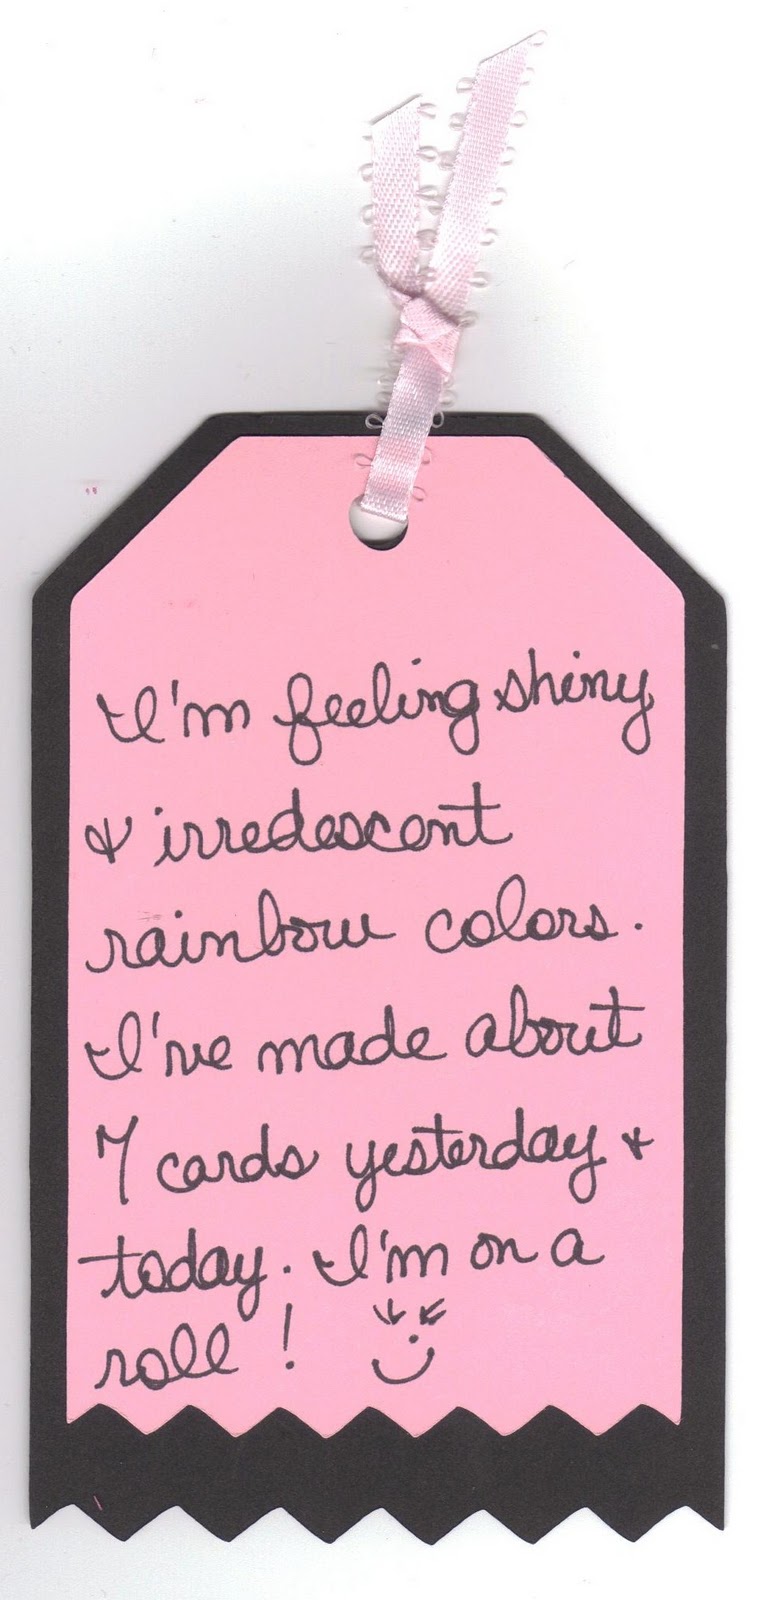 I'm feeling shiny
& irredescent
rainbow colors.
I've made about
7 cards yesterday &
today. I'm on a
roll!